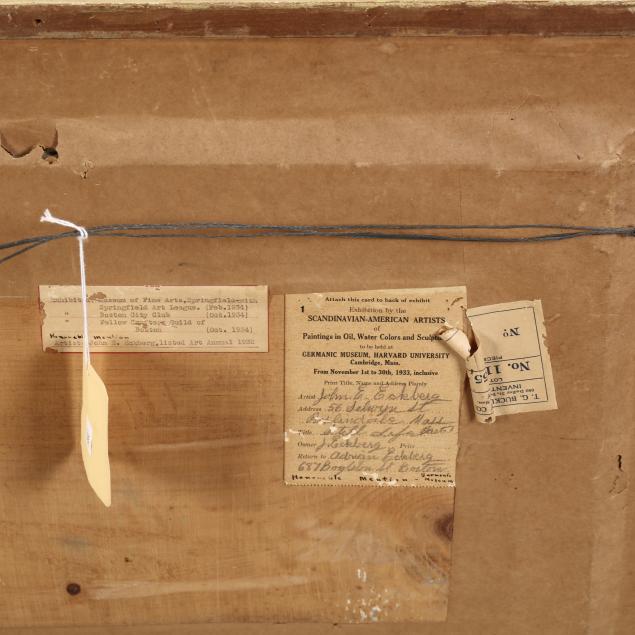 Exhibited Museum of Fine Arts, Springfield with
Springfield Art League. (Feb. 1934)
" Boston City Club (Oct. 1934)
" Fellow Guild of
Boston (Oct. 1934)
Honorable Mention
Artist John E. Eckberg, listed Art Annual 1932
Attach this card to back of exhibit
1
Exhibition by the
SCANDINAVIAN-AMERICAN ARTISTS
of
Paintings in Oil, Water Colors and Sculpture
to be held at
GERMANIC MUSEUM, HARVARD UNIVERSITY
Cambridge, Mass.
From November 1st to 30th, 1933, inclusive
Print Title, Name and Address Plainly
Artist John E. Eckberg
Address 56 Selwyn St
Roslindale, Mass
Title Still Life
Owner J. Eckberg Price
Return to Adrian Eckberg
687 Boylston St. Boston
Honorable Mention - Germanic Museum
T. G. BUCKL
INVENT
LOT
No. 1155
PIECE
No
CO